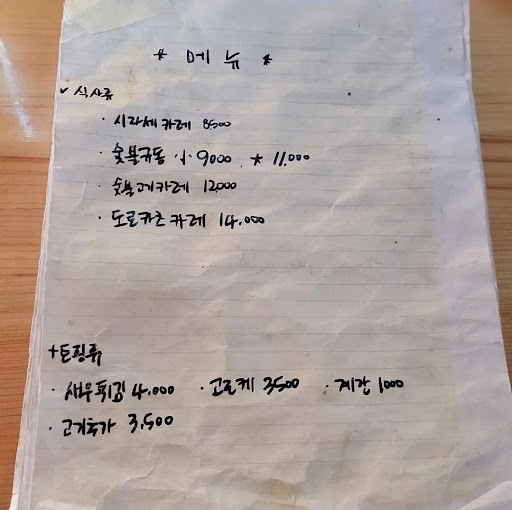 * 메뉴 *
✓ 식사류
· 시라세 카레 8500
· 숯불규동 小 9000 . 大 11,000
· 숯불고기카레 12,000
· 도로카츠 카레 14,000
+토핑류
· 새우튀김 4,000 · 고로케 3500 · 계란 1000
· 고기추가 3,500